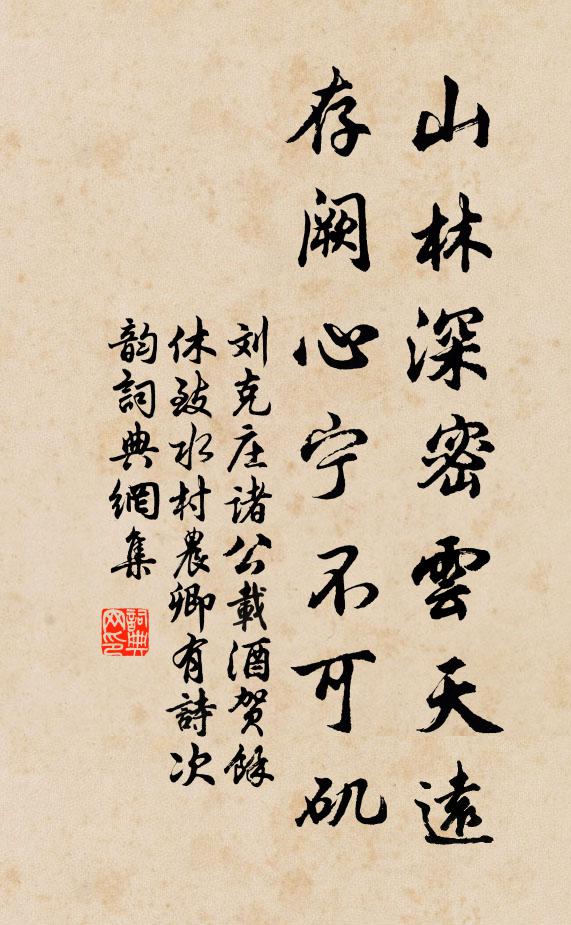 山林深密雲天遠
存阙心宁不可矶
刘克庄諸公載酒贺餘
休致水村農卿有詩次
韵詞典網集
詞典网印